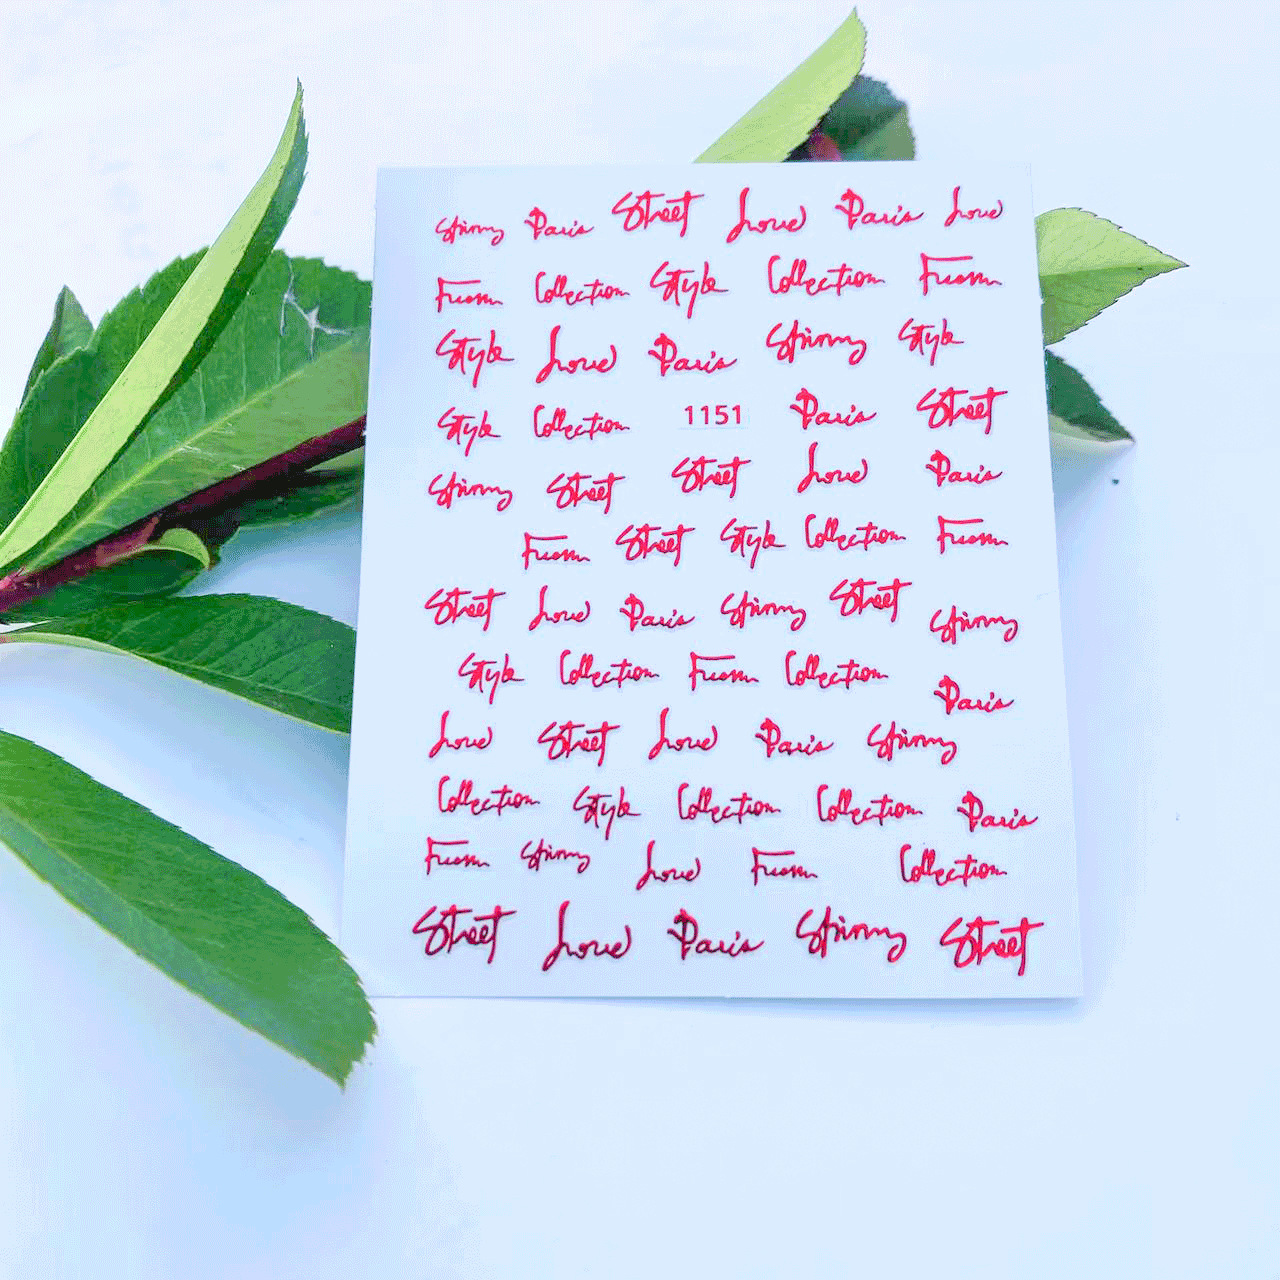 Paris Street Love Paris Love
From Collection Style Collection From
Style Love Paris Style
Style Collection 1151 Paris Street
Street Street Love Paris
From Street Style Collection From
Street Love Paris Street
Style Collection From Collection Paris
Love Street Love Paris
Collection Style Collection Collection Paris
From Love From Collection
Street Love Paris Street